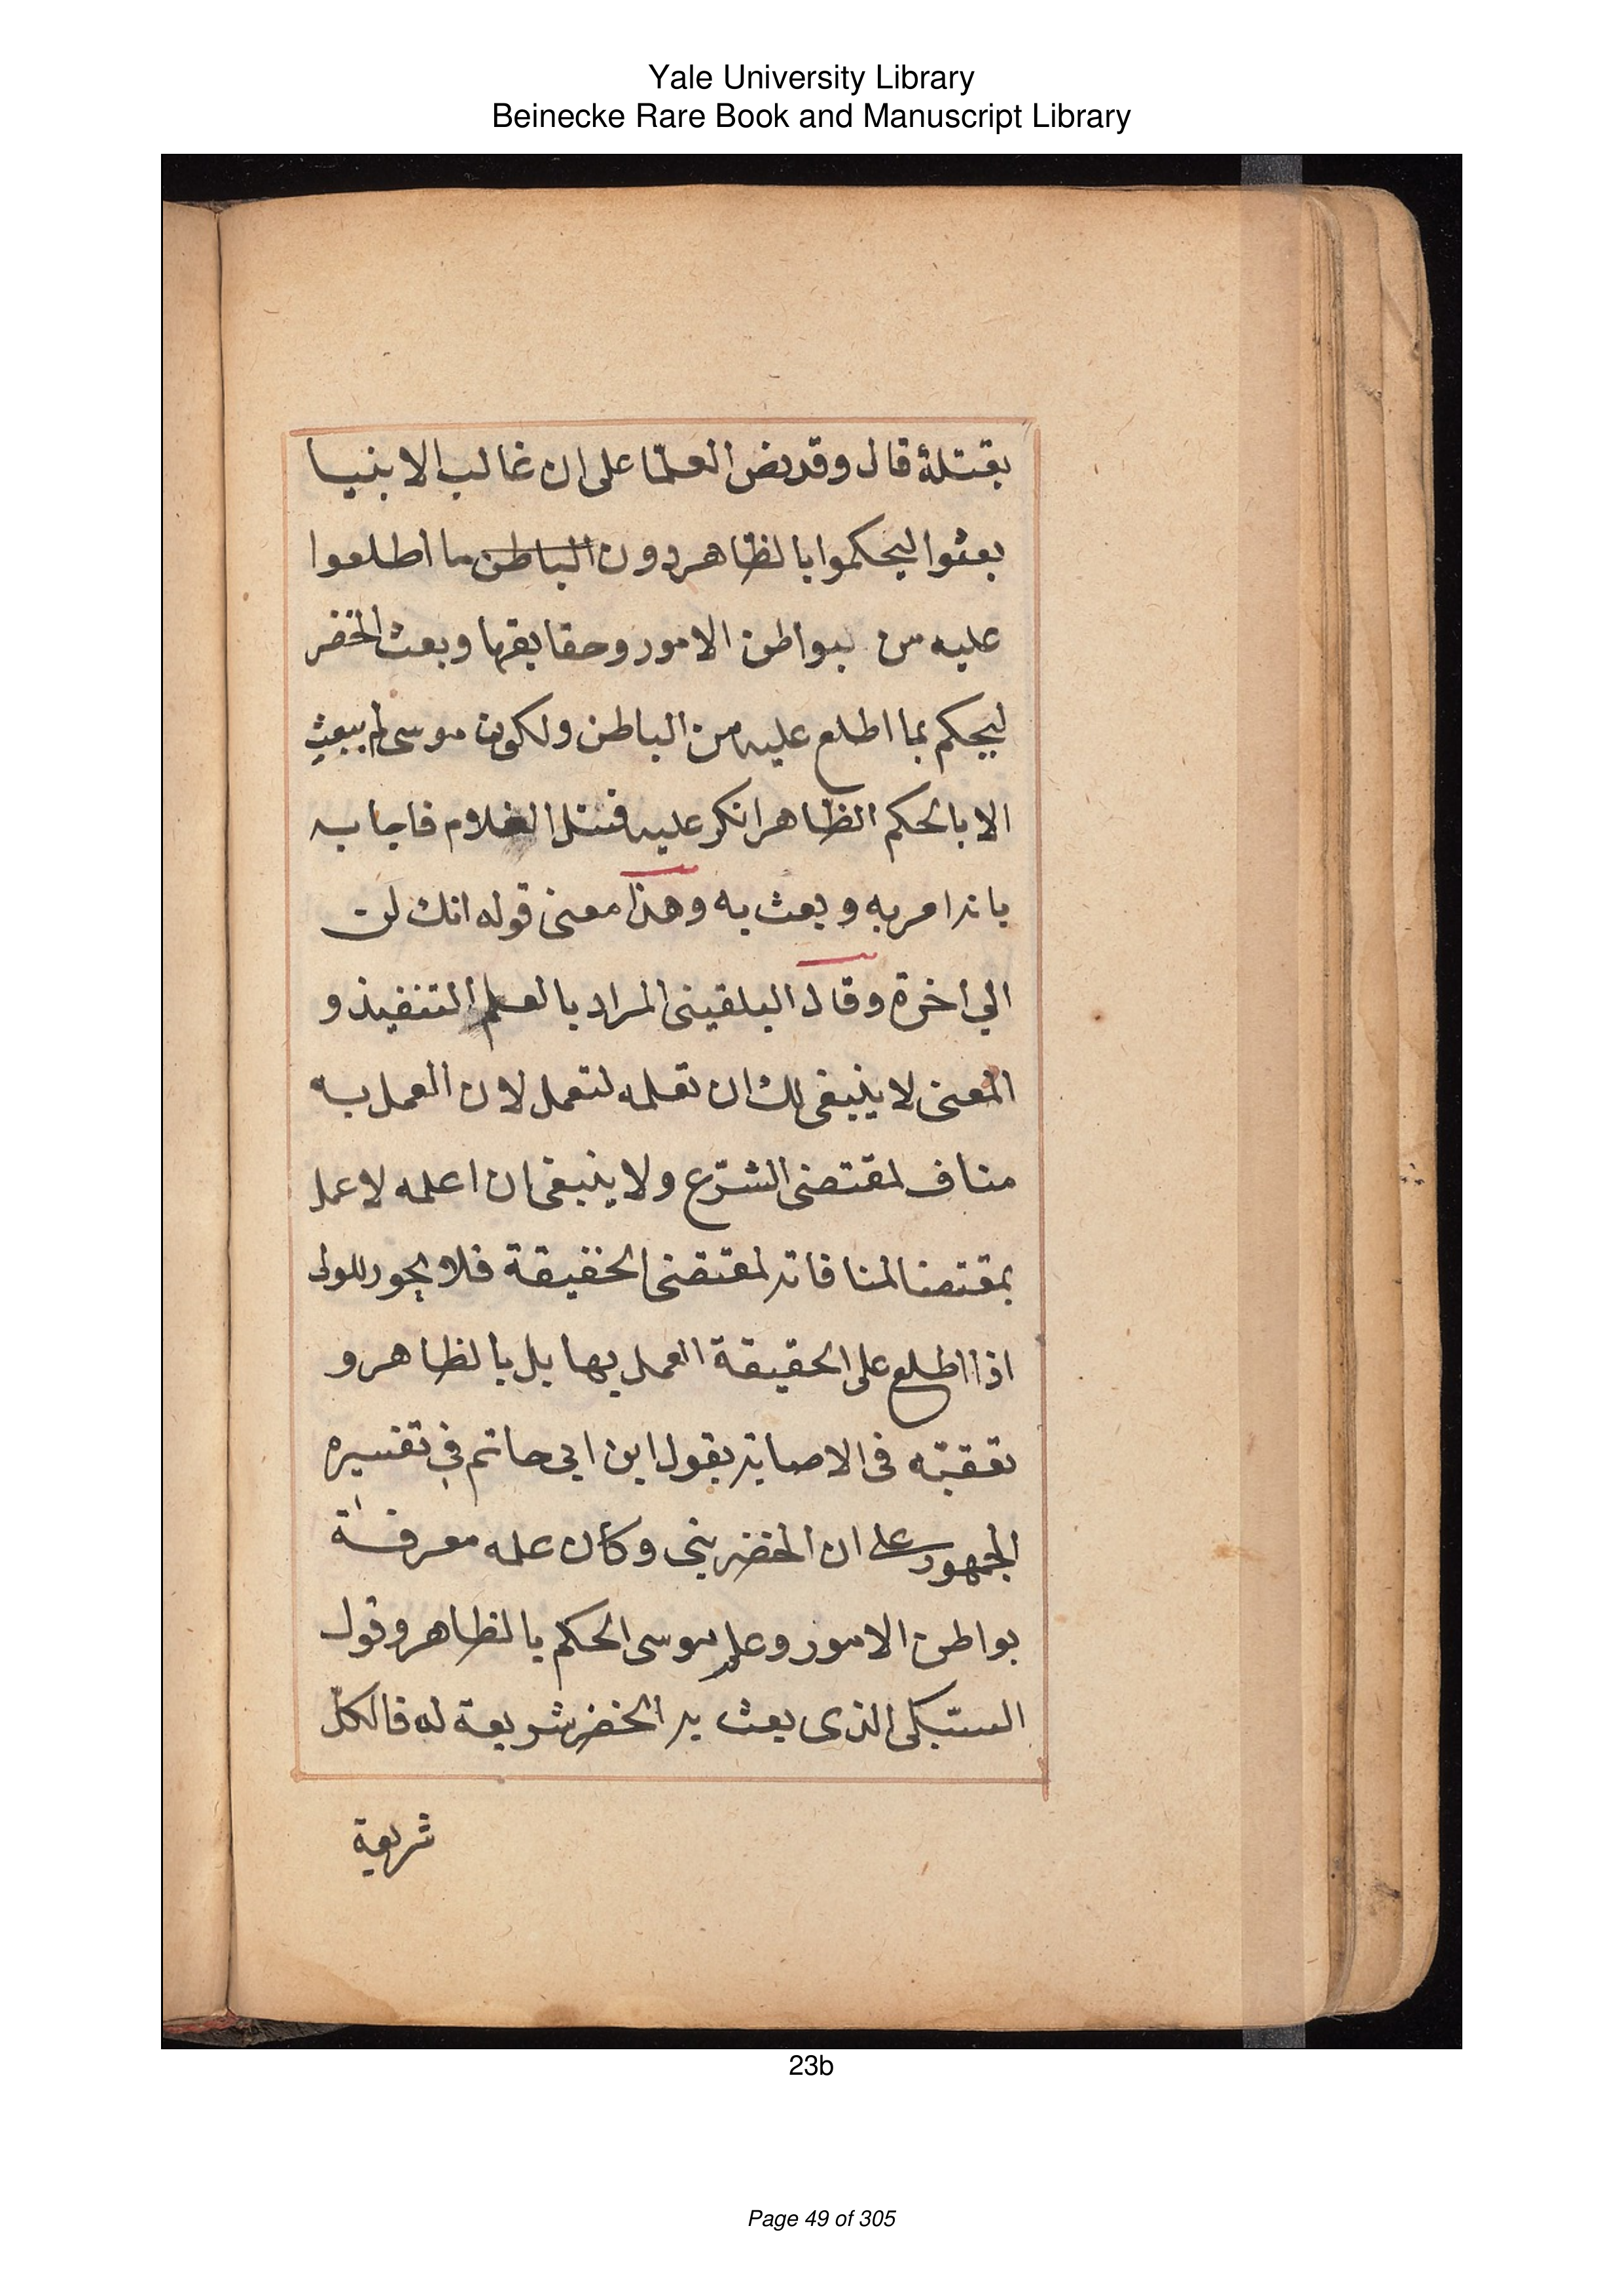 Yale University Library
Beinecke Rare Book and Manuscript Library
بقتلة قال وقد نص العلّما على ان غالب الانبيا
بعثوا ليحكموا بالظاهر دون الباطن ما اطلعوا
عليه من بواطن الامور وحقايقها وبعث الخضر
ليحكم بما اطلع عليه من الباطن ولكون موسى لم يبعث
الا بالحكم الظاهر انكر عليه قتل الغلام فاجابه
بانه امر به وبعث به وهذا معنى قوله انك لن
الي اخرة وقال البلقينى المراد بالعلم التنفيذ و
المعنى لا ينبغى لك ان تعلمه لتعمل لان العمل به
مناف لمقتضى الشّرع ولا ينبغى ان اعلمه لاعمل
بمقتضا لمنافاته لمقتضى الحقيقة فلا يجوز للولى
اذا اطلع على الحقيقة العمل بها بل بالظاهر و
تعقبّه فى الاصابة بقول ابن ابي حاتم في تفسيره
الجمهور على ان الخضر بنى وكان علمه معرفة
بواطن الامور وعلم موسى الحكم بالظاهر وقول
السّبكى الذى بعث به الخضر شريعة له فالكلّ
شريعة
23b
Page 49 of 305